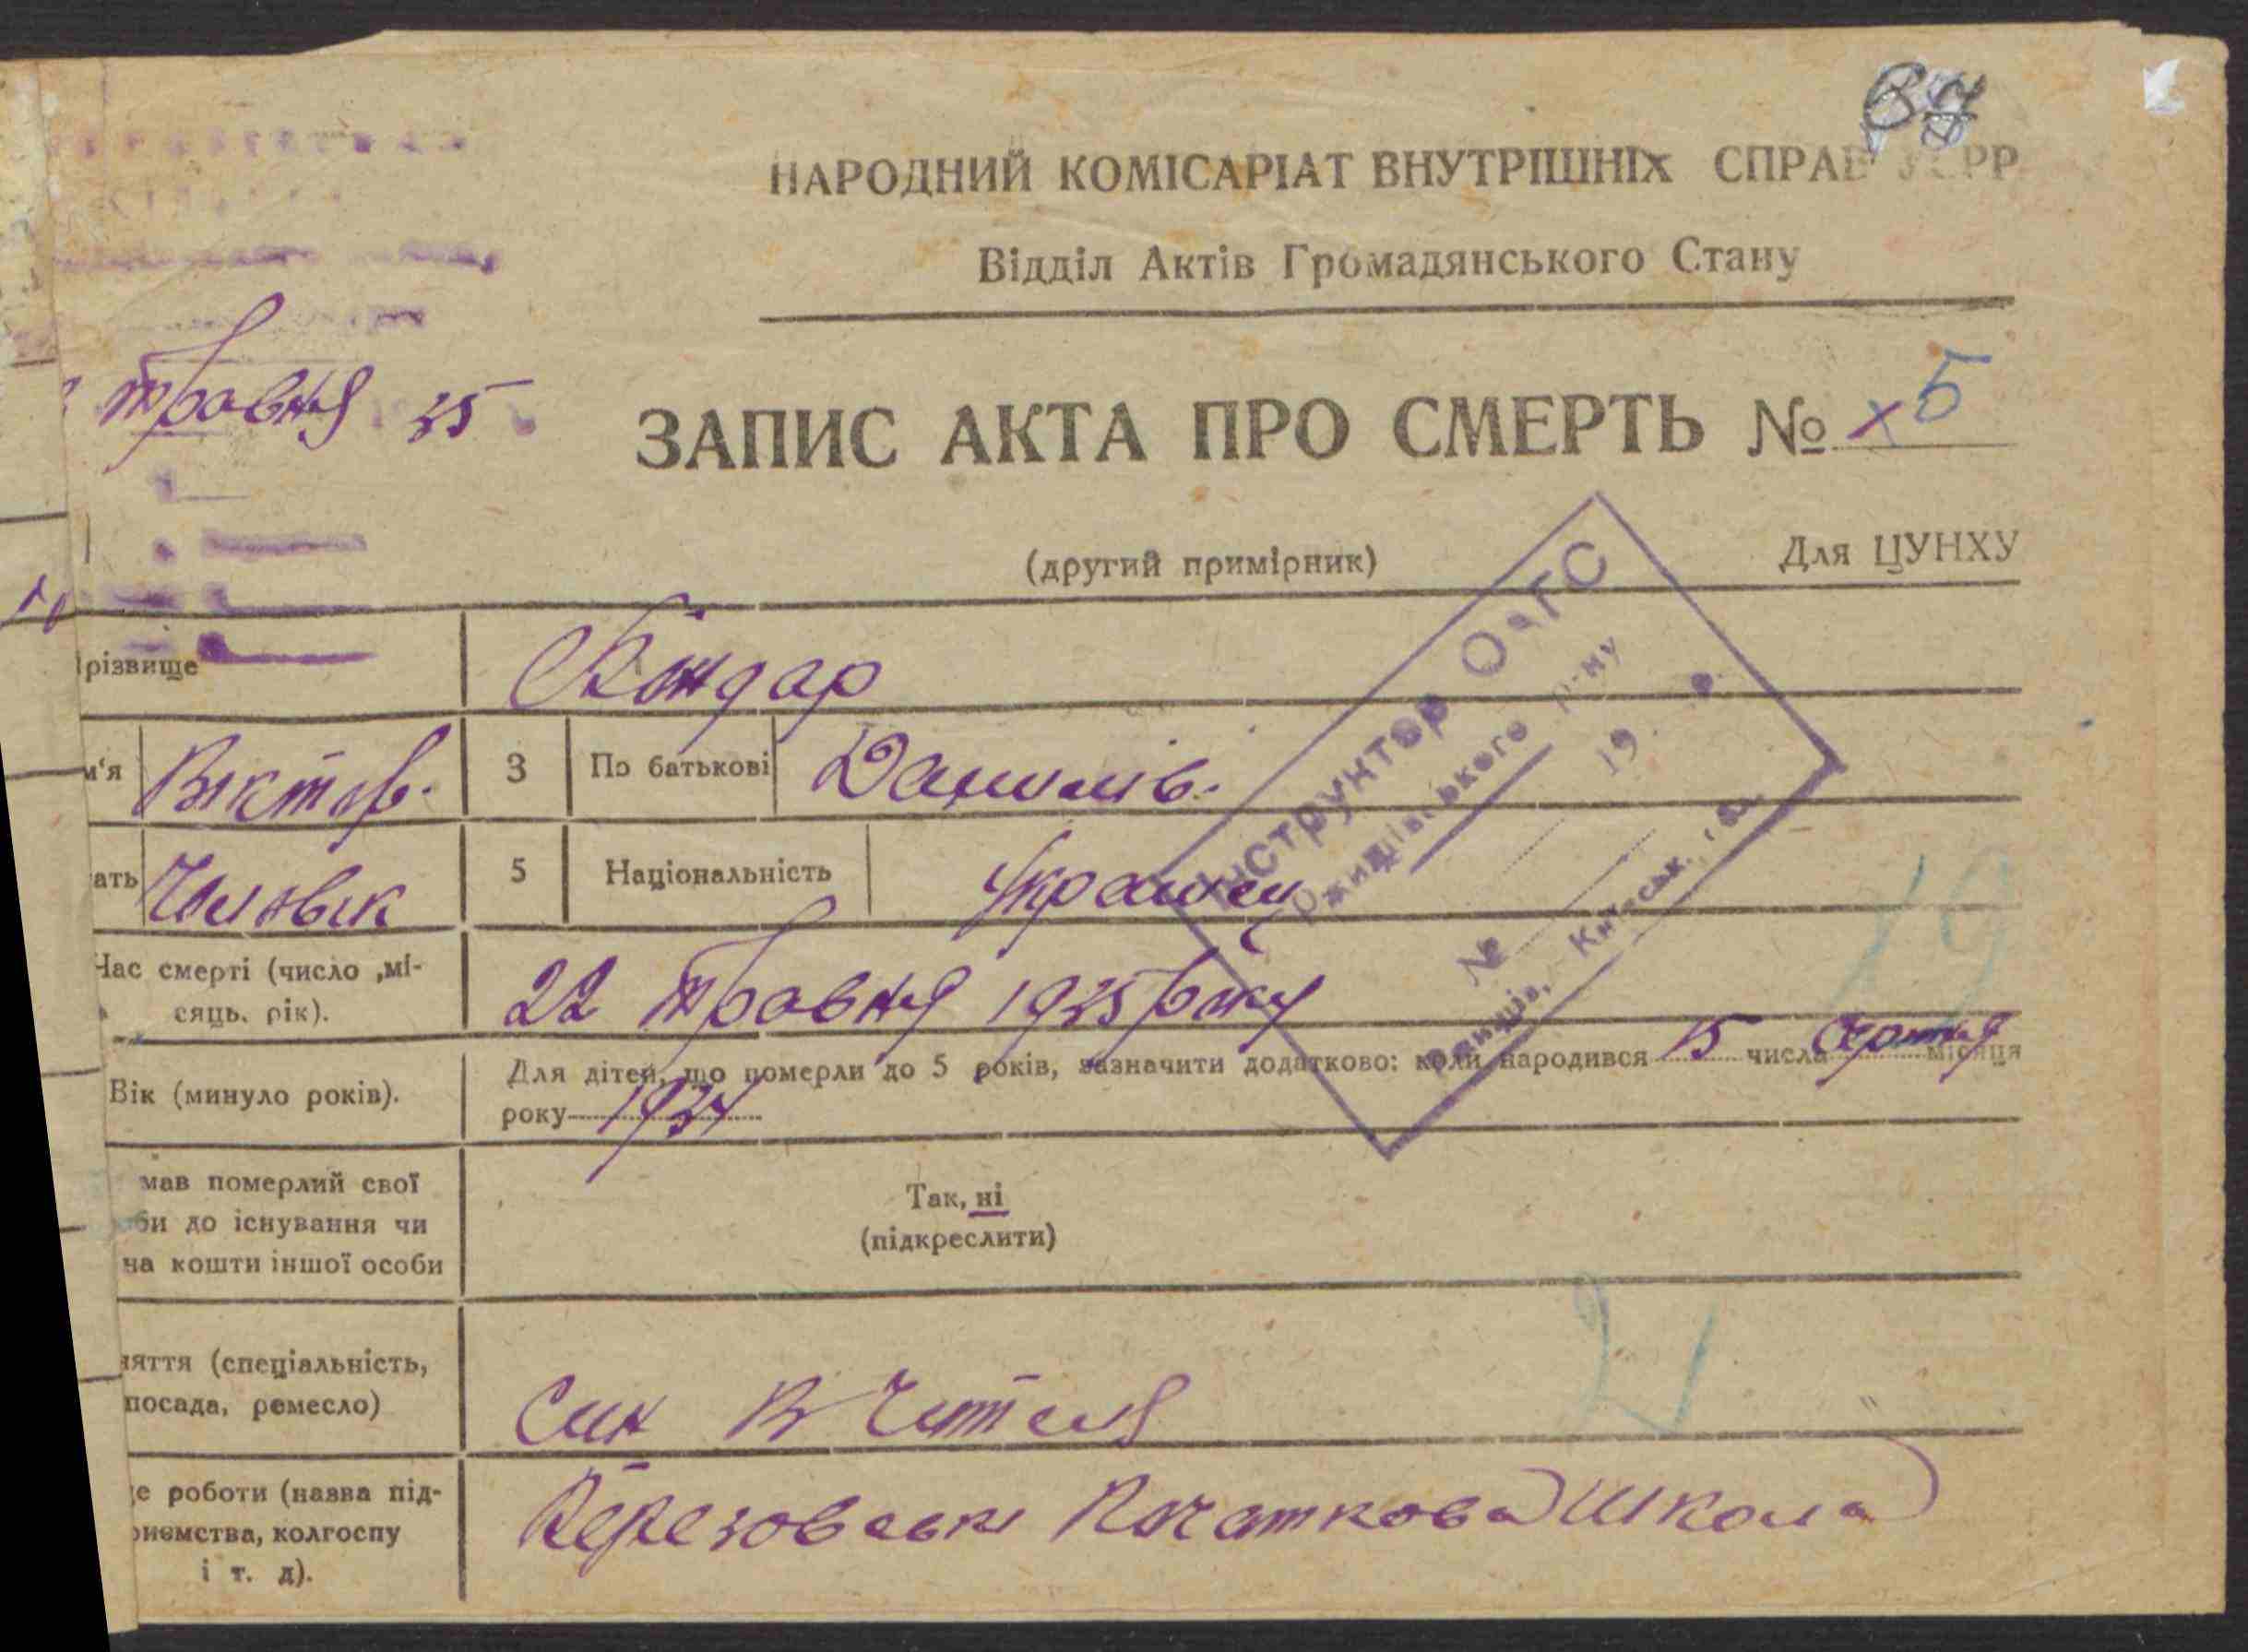 НАРОДНИЙ КОМІСАРІАТ ВНУТРІШНІХ СПРАВ УСРР
Відділ Актів Громадянського Стану
травня 35
ЗАПИС АКТА ПРО СМЕРТЬ № х 5
(другий примірник)
Для ЦУНХУ
різвище
Бондар
м'я
Віктор.
3
По батькові
Данилів.
ать
Чиловік
5
Національність
Українец
Час смерті (число ,мі-
сяць. рік).
22 травня 1935 року
Вік (минуло років).
Для дітей, що померли до 5 років, зазначити додатково: коли народився 15 числа серпня місяця
року 1934
мав померлий свої
би до існування чи
на кошти іншої особи
Так, ні
(підкреслити)
няття (спеціальність,
посада, ремесло)
Син Вчителя
це роботи (назва під-
риємства, колгоспу
і т. д).
Березовськ Початкова Школа
Інструктор ОАГС
Ржищівського р-ну
19 р.
№
Ржищів, Київськ. обл.